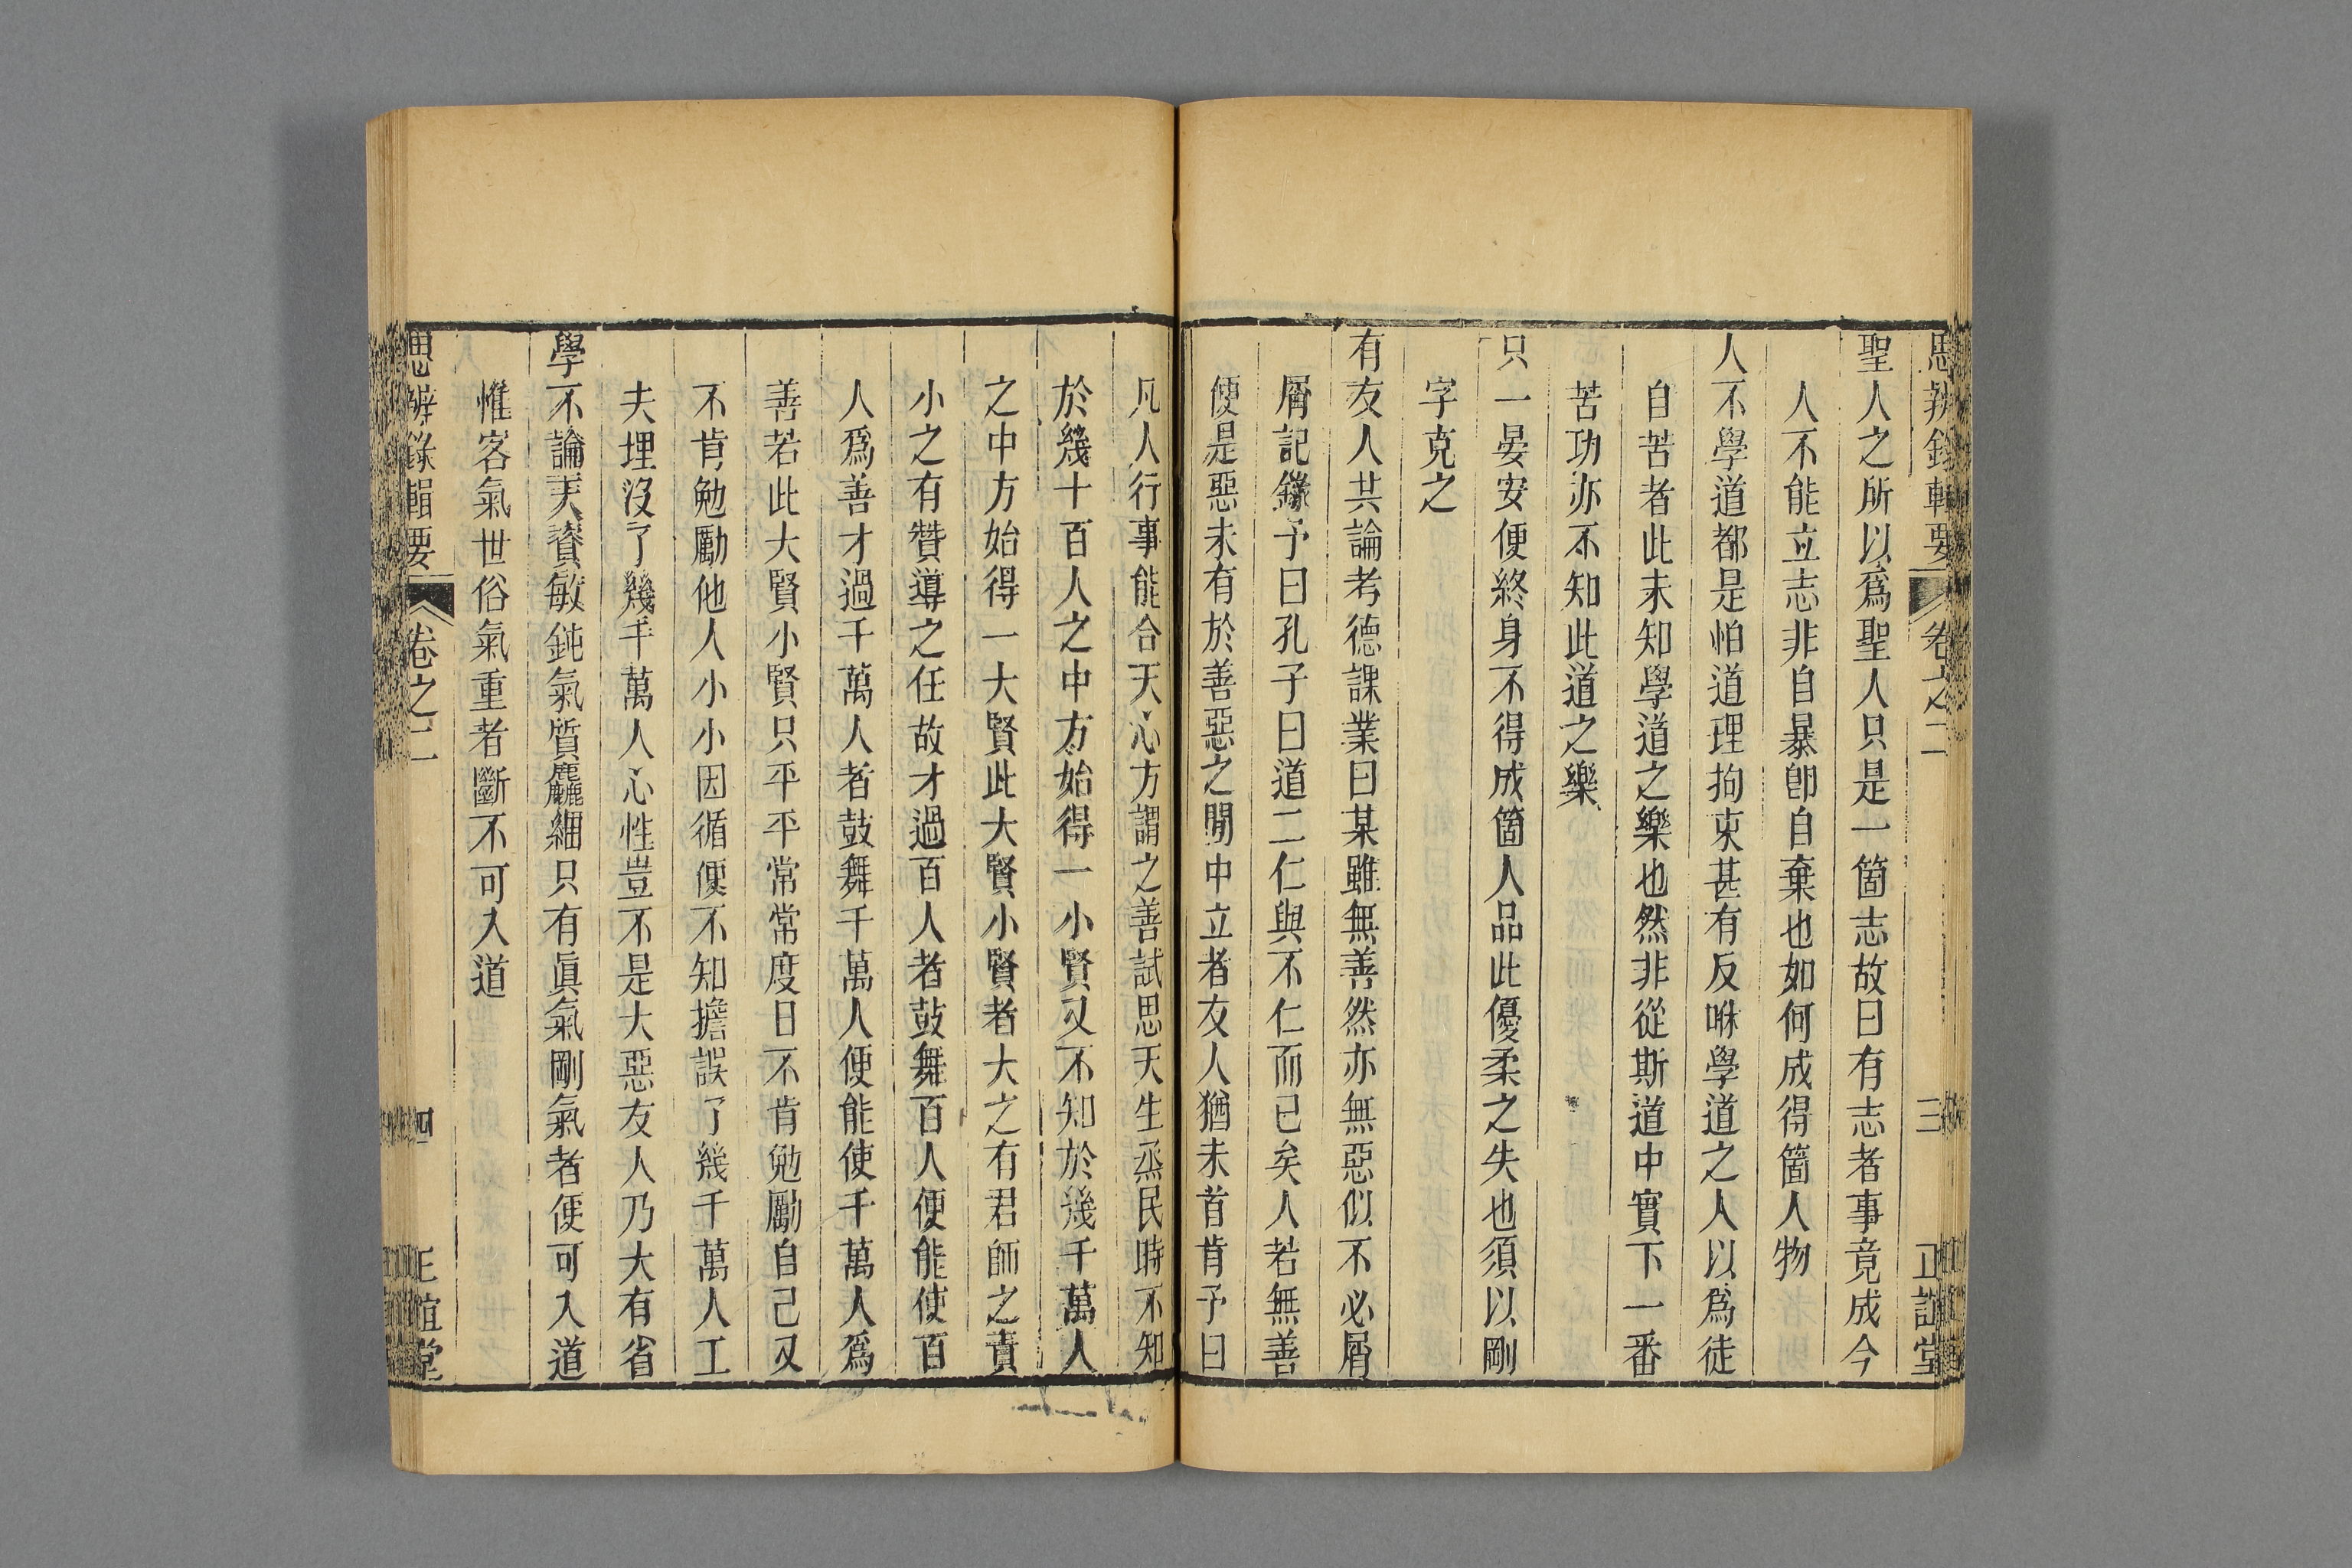 思辨錄輯要 卷之二 三 正誼堂
聖人之所以爲聖人只是一箇志故曰有志者事竟成今
人不能立志非自暴卽自棄也如何成得箇人物
人不學道都是怕道理拘束甚有反咻學道之人以爲徒
自苦者此未知學道之樂也然非從斯道中實下一番
苦功亦不知此道之樂
只一晏安便終身不得成箇人品此優柔之失也須以剛
字克之
有友人共論考德課業曰某雖無善然亦無惡似不必屑
屑記錄予曰孔子曰道二仁與不仁而已矣人若無善
便是惡未有於善惡之閒中立者友人猶未首肯予曰
凡人行事能合天心方謂之善試思天生烝民時不知
於幾十百人之中方始得一小賢又不知於幾千萬人
之中方始得一大賢此大賢小賢者大之有君師之責
小之有贊導之任故才過百人者鼓舞百人便能使百
人爲善才過千萬人者鼓舞千萬人便能使千萬人爲
善若此大賢小賢只平平常常度日不肯勉勵自己又
不肯勉勵他人小小因循便不知擔誤了幾千萬人工
夫埋沒了幾千萬人心性豈不是大惡友人乃大有省
學不論天資敏鈍氣質麤細只有眞氣剛氣者便可入道
惟客氣世俗氣重者斷不可入道
思辨錄輯要 卷之二 四 正誼堂